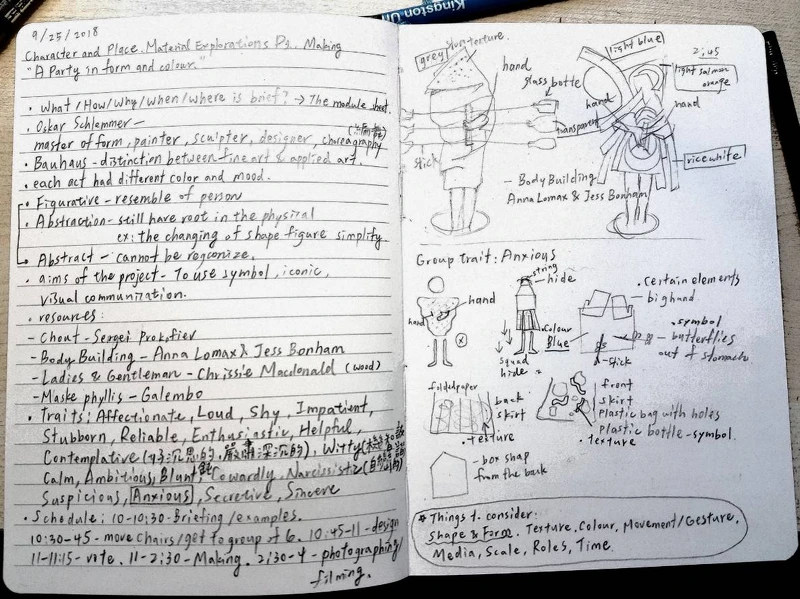 Kingston Un
9/25/2018
Character and Place. Material Explorations Making
"A Party in form and colour."
• What/How/Why/When/Where is brief? → The module sheet.
• Oskar Schlemmer –
master of form, painter, sculpter, designer, choreagraphy
• Bauhaus – distinction between fine art & applied art.
• each act had different color and mood.
• Figurative – resemble of person
• Abstraction – still have root in the physical
ex: the changing of shape figure simplify
• Abstract – cannot be regconize.
• aims of the project – To use symbol, iconic,
visual communication.
• resources:
– Chout – Sergei Prokofiev
– Body Building – Anna Lomax & Jess Bonham
– Ladies & Gentleman – Chrissie Macdonald (wood)
– Maske phyllis – Galembo
• Traits: Affectionate, Loud, Shy, Impatient,
Stubborn, Reliable, Enthusiastic, Helpful,
Contemplative (沉思的, 深沉的), Witty
Calm, Ambitious, Blunt, Cowardly, Narcissistic
Suspicious, Anxious, Secretive, Sincere
• Schedule: 10-10:30-Briefing/examples.
10:30-45 - move chairs/get to group of 6. 10:45-11 - design
11-11:15 - vote. 11-2:30 - Making. 2:30-4 - photographing/
filming.
grey
texture.
hand
glass bottle
transparent
stick
light blue
2:45
light salmon
orange
hand
hand
rice white
– Body Building
Anna Lomax & Jess Bonham
Group trait: Anxious
hand
hand
string
hide
squad
hide
Colour
Blue
stick
• Certain elements
– big hand
• symbol
– butterflies
out of stomach
folded paper
back
skirt
• texture
front
skirt
plastic bag with holes
plastic bottle - symbol.
• texture
– box shap
from the back
* Things to consider:
Shape & Form. Texture. Colour, Movement/Gesture,
Media, Scale, Roles, Time.